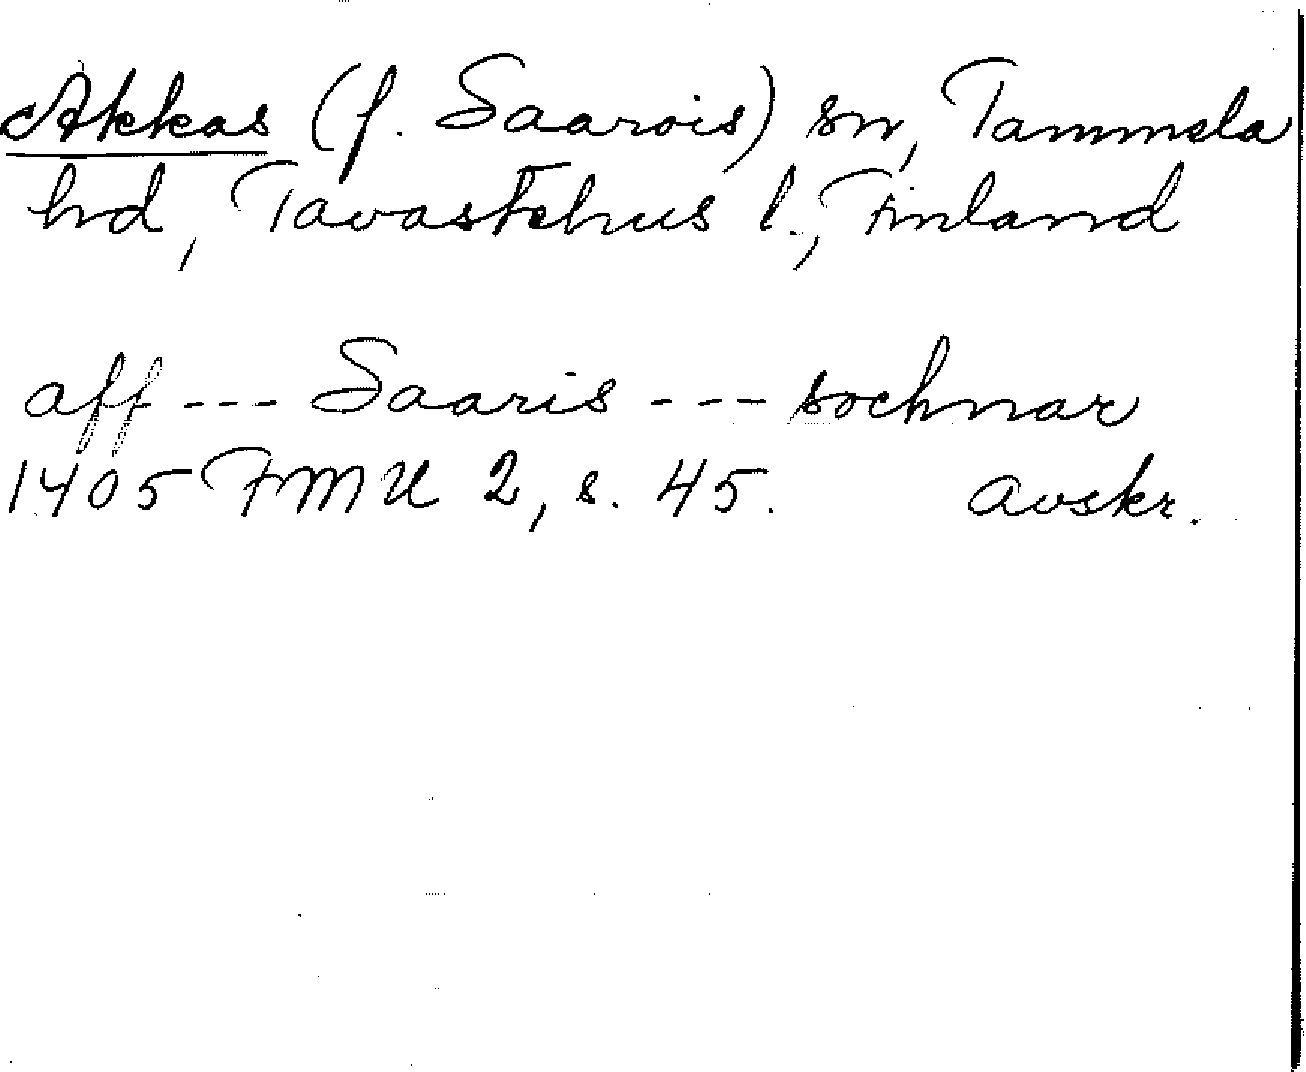 Akkas (f. Saarois) sn, Tammela
hd, Tavastehus l., Finland
aff --- Saaris --- sochnar
1405 FMU 2, s. 45. avskr.